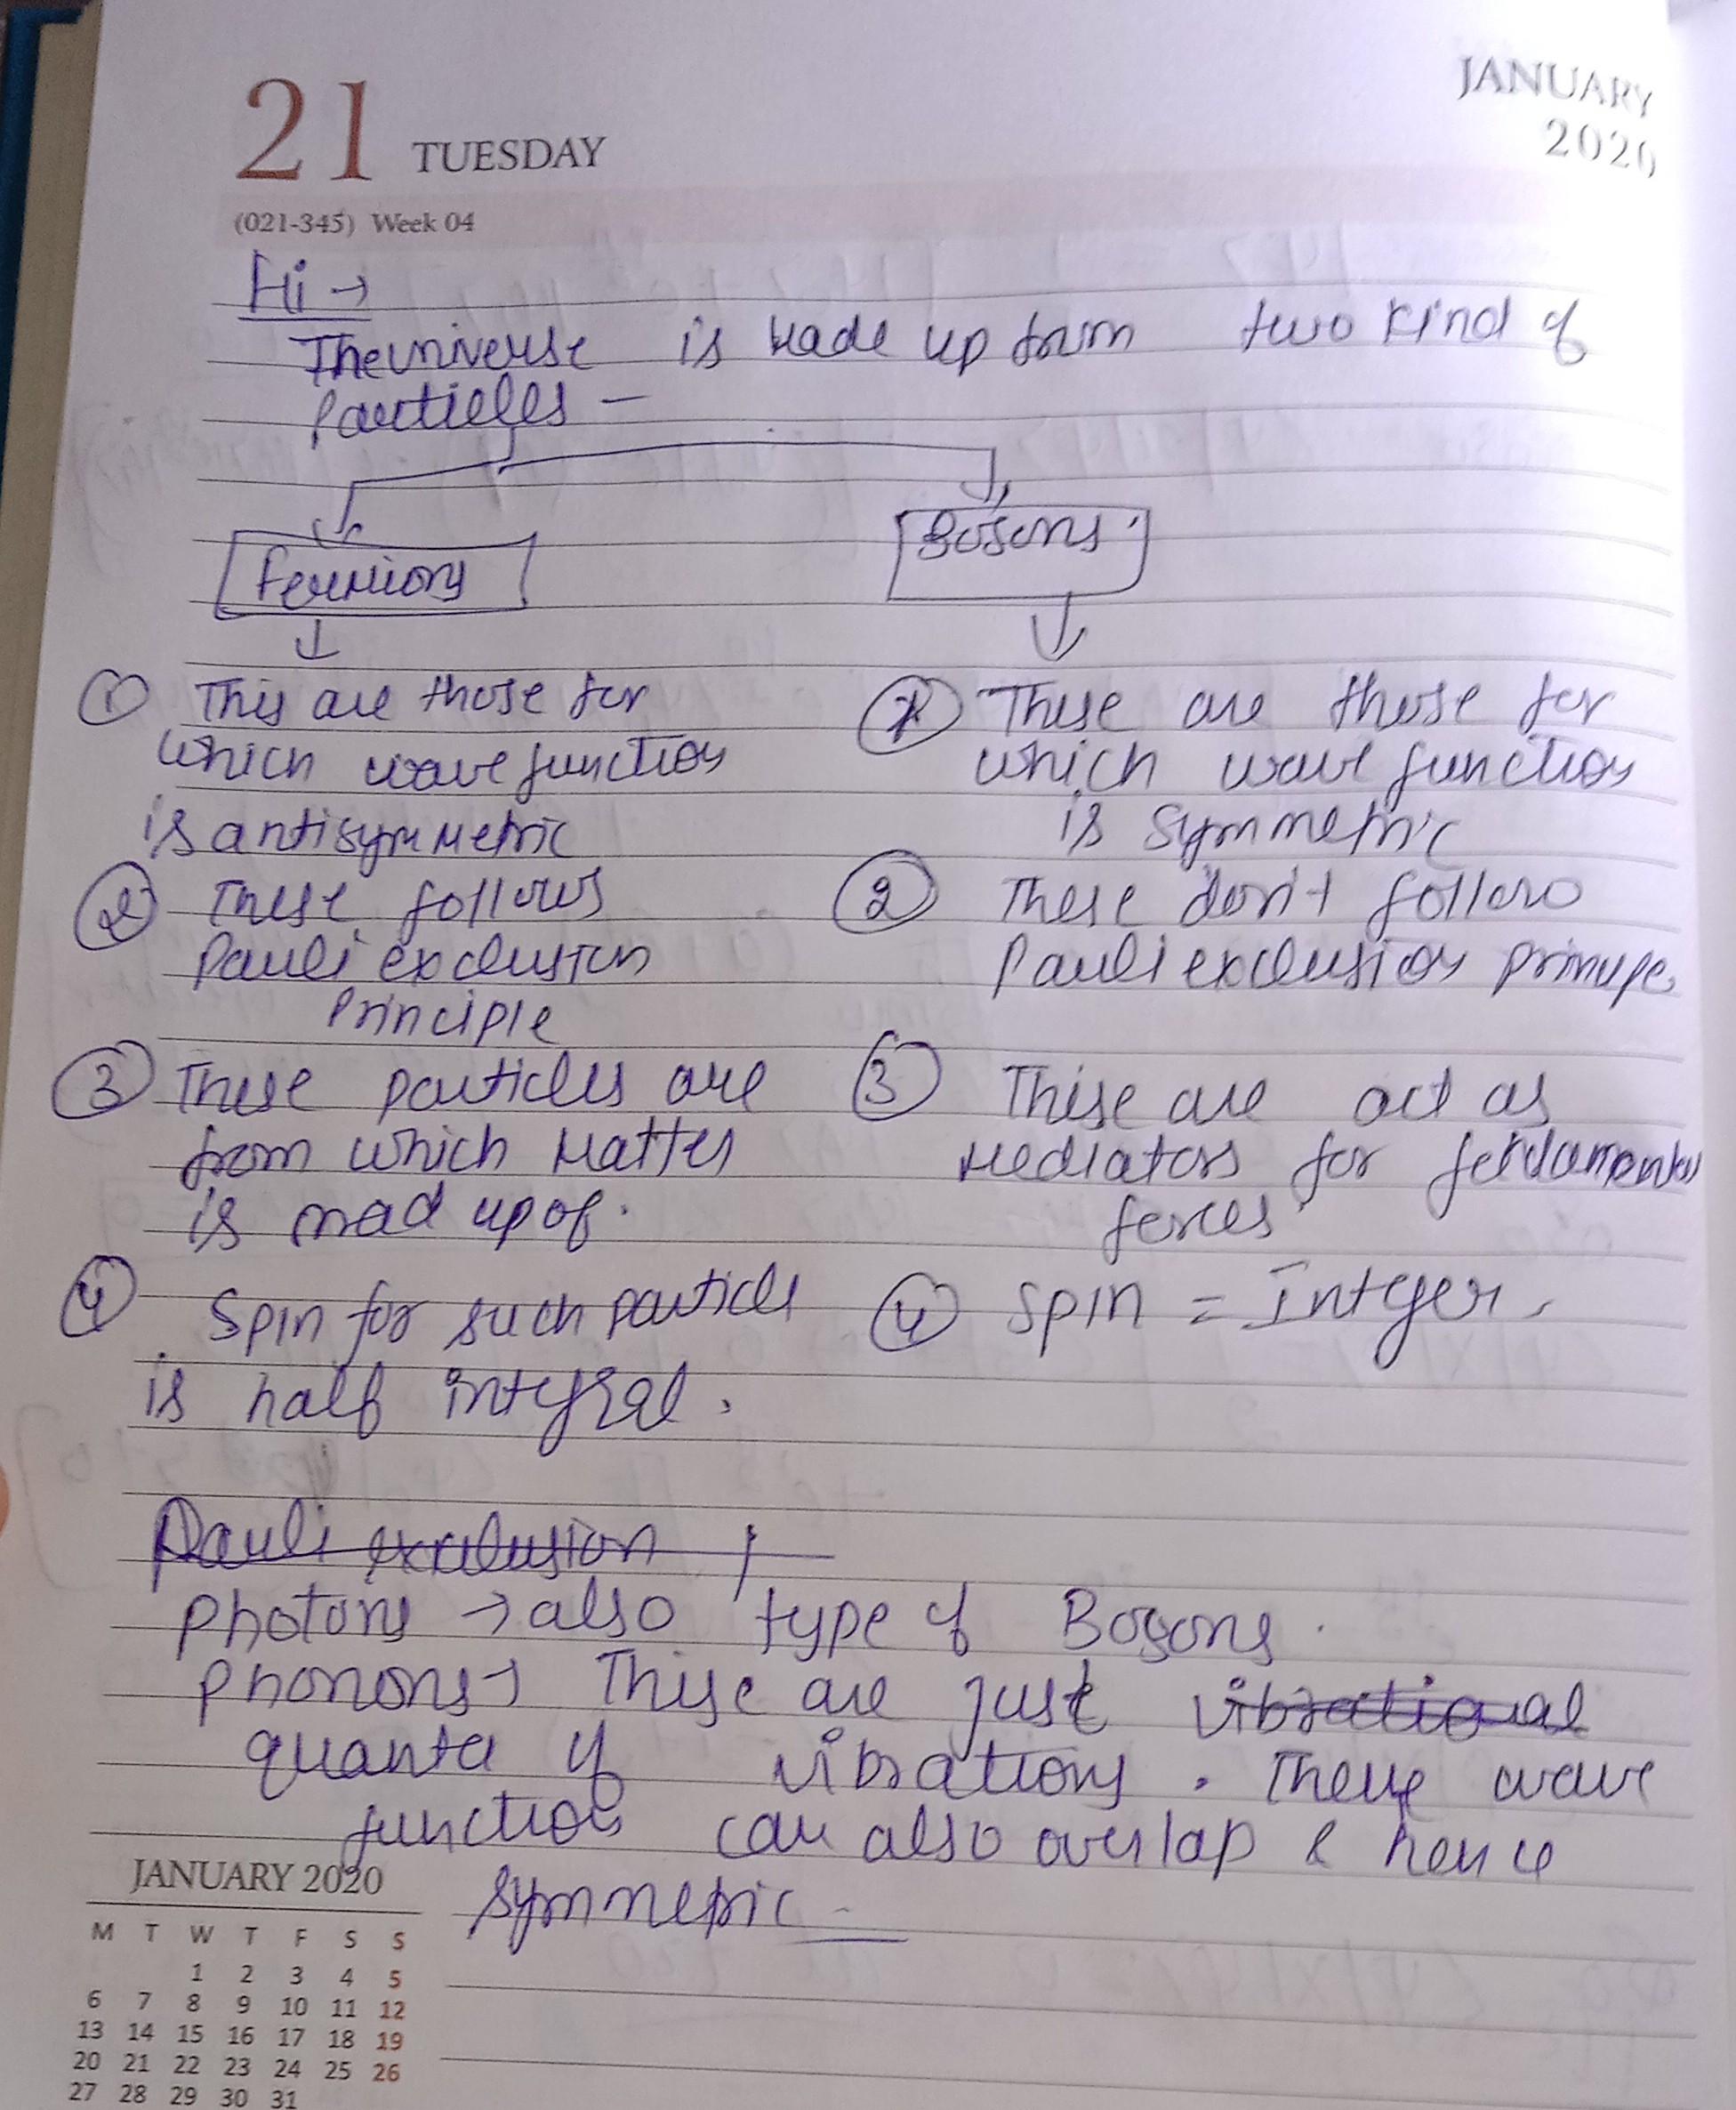 JANUARY
2020
21 TUESDAY
(021-345) Week 04
Hi →
The universe is made up from two kind of
Particles —
Fermions
Bosons
↓
① This are those for
which wave function
is antisymmetric
② These follows
Pauli exclusion
Principle
③ These particles are
from which Matter
is mad up of.
④ Spin for such particle
is half integral.
① These are those for
which wave function
is symmetric
② These don't follow
Pauli exclusion principle
③ These are act as
Mediators for
forces
④ Spin = Integer.
Pauli exclusion
Photons → also type of Bosons.
Phonons → These are just vibrational
quanta of vibrations. These wave
function can also overlap & hence
symmetric
JANUARY 2020
M T W T F S S
1 2 3 4 5
6 7 8 9 10 11 12
13 14 15 16 17 18 19
20 21 22 23 24 25 26
27 28 29 30 31